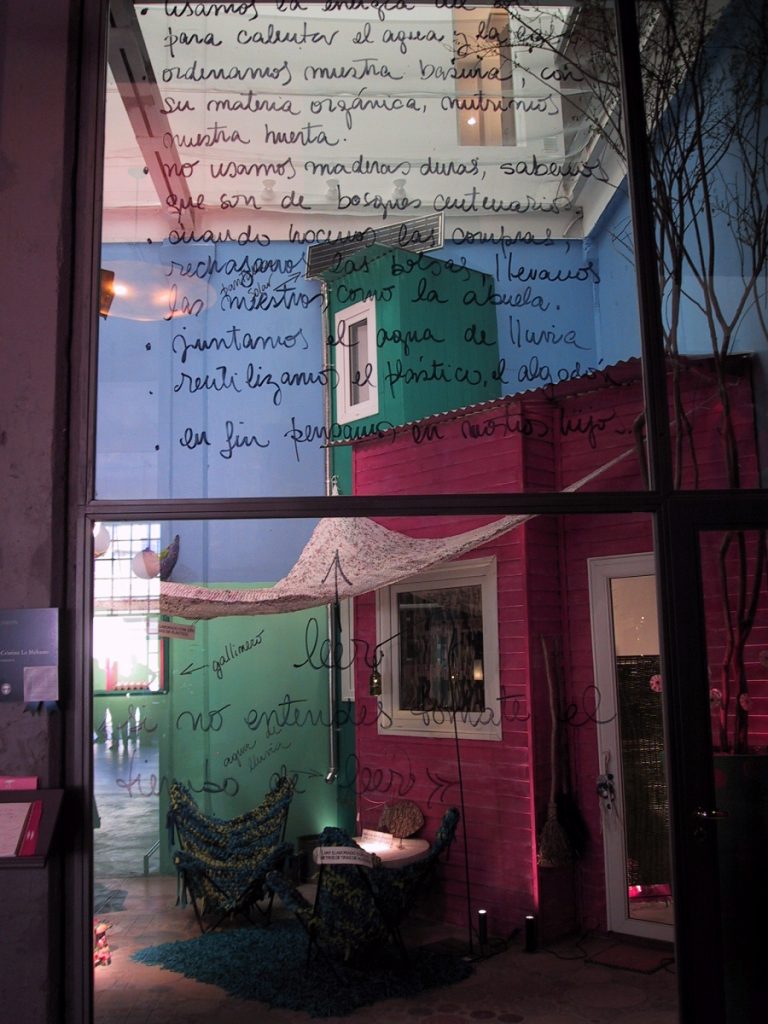 . usamos la energía del sol
para calentar el agua y la ca
. ordenamos nuestra basura, con
su materia orgánica, nutrimos
nuestra huerta.
. no usamos maderas duras, sabemos
que son de bosques centenarios
. cuando hacemos las compras,
rechasamos las bolsas, llevamos
las nuestras, como la abuela.
panel solar
. juntamos el agua de lluvia
. reutilizamos el plástico, el algodón
. en fin pensamos en nuestros hijos...
← gallinero
leer
si no entendes tomate el
agua de
lluvia
tiempo de leer »
Cristina Lo Meluzno